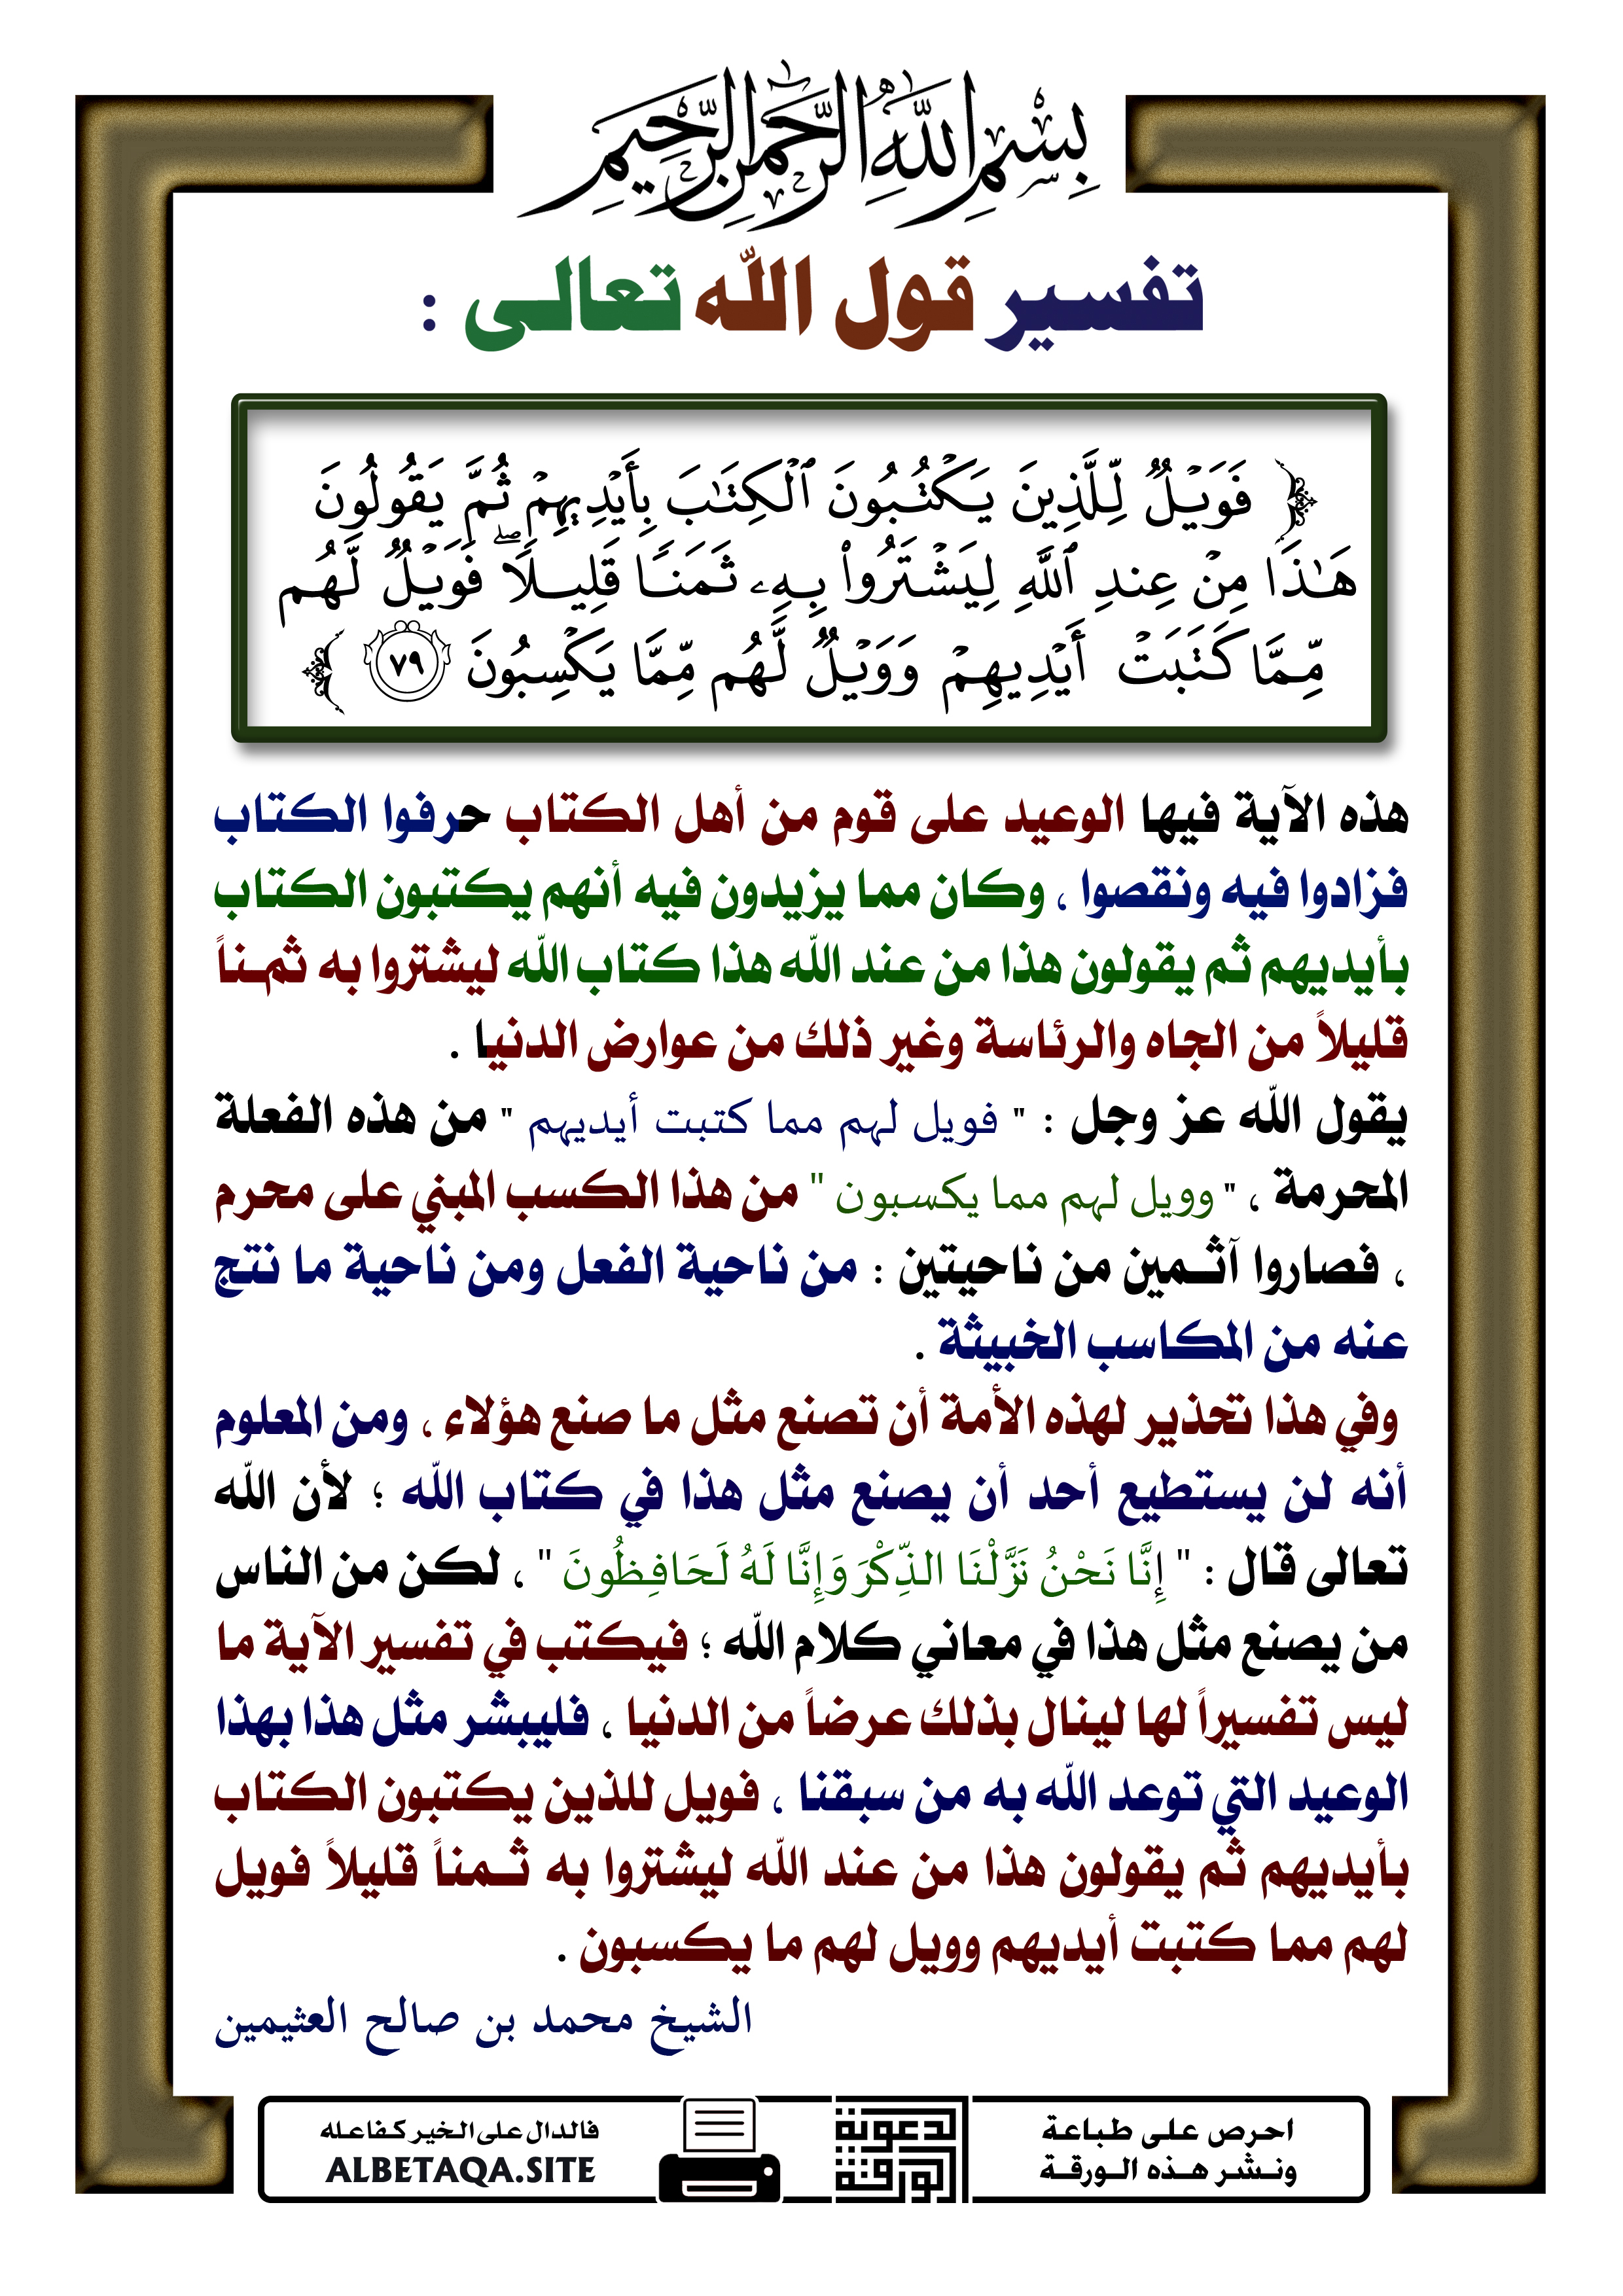 بِسْمِ اللَّهِ الرَّحْمَٰنِ الرَّحِيمِ
تفسير قول الله تعالى :
﴿ فَوَيْلٌ لِّلَّذِينَ يَكْتُبُونَ ٱلْكِتَٰبَ بِأَيْدِيهِمْ ثُمَّ يَقُولُونَ
هَٰذَا مِنْ عِندِ ٱللَّهِ لِيَشْتَرُوا۟ بِهِۦ ثَمَنًا قَلِيلًا ۖ فَوَيْلٌ لَّهُم
مِّمَّا كَتَبَتْ أَيْدِيهِمْ وَوَيْلٌ لَّهُم مِّمَّا يَكْسِبُونَ ٧٩ ﴾
هذه الآية فيها الوعيد على قوم من أهل الكتاب حرفوا الكتاب
فزادوا فيه ونقصوا ، وكان مما يزيدون فيه أنهم يكتبون الكتاب
بأيديهم ثم يقولون هذا من عند الله هذا كتاب الله ليشتروا به ثمـناً
قليلاً من الجاه والرئاسة وغير ذلك من عوارض الدنيا .
يقول الله عز وجل : " فويل لهم مما كتبت أيديهم " من هذه الفعلة
المحرمة ، " وويل لهم مما يكسبون " من هذا الكسب المبني على محرم
، فصاروا آثـمين من ناحيتين : من ناحية الفعل ومن ناحية ما نتج
عنه من المكاسب الخبيثة .
وفي هذا تحذير لهذه الأمة أن تصنع مثل ما صنع هؤلاء ، ومن المعلوم
أنه لن يستطيع أحد أن يصنع مثل هذا في كتاب الله ؛ لأن الله
تعالى قال : " إِنَّا نَحْنُ نَزَّلْنَا الذِّكْرَ وَإِنَّا لَهُ لَحَافِظُونَ " ، لكن من الناس
من يصنع مثل هذا في معاني كلام الله ؛ فيكتب في تفسير الآية ما
ليس تفسيراً لها لينال بذلك عرضاً من الدنيا ، فليبشر مثل هذا بهذا
الوعيد التي توعد الله به من سبقنا ، فويل للذين يكتبون الكتاب
بأيديهم ثم يقولون هذا من عند الله ليشتروا به ثـمناً قليلاً فويل
لهم مما كتبت أيديهم وويل لهم ما يكسبون .
الشيخ محمد بن صالح العثيمين
احرص على طباعة
ونـشـر هـذه الـورقـة
الدعوية
الورقية
فالدال على الخير كفاعله
ALBETAQA.SITE